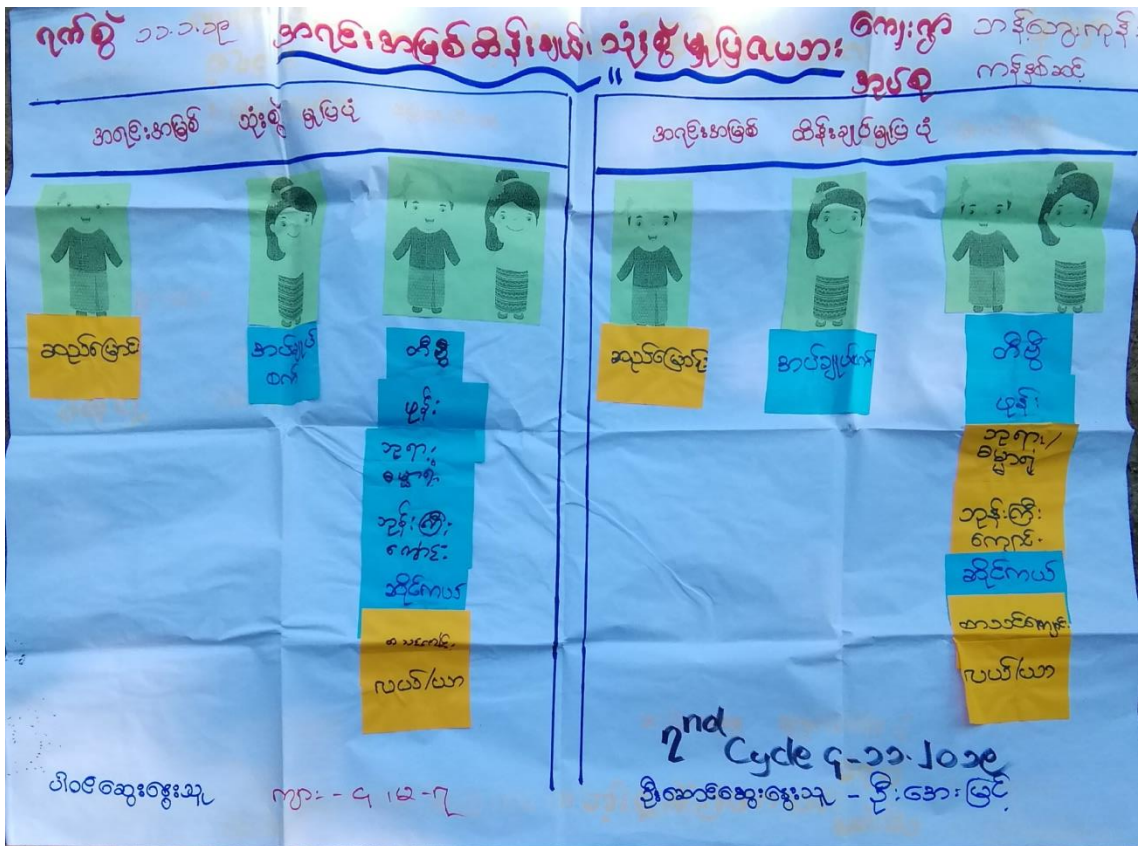 ရက်စွဲ ၁၁.၁.၁၉
အရင်းအမြစ်ထိန်းချုပ်၊ သုံးစွဲမှုပြဇယား
ကျေးရွာ ဘန့်ဘွေးကုန်း
အုပ်စု ကန်နှစ်ဆင့်
အရင်းအမြစ် သုံးစွဲမှုပြပုံ
အရင်းအမြစ် ထိန်းချုပ်မှုပြပုံ
ဆည်မြောင်း
အပ်ချုပ်
စက်
တီဗွီ
ဖုန်း
ဘုရား
ဓမ္မာရုံ
ဘုန်းကြီး
ကျောင်း
ဆိုင်ကယ်
စာသင်ကျောင်း
လယ်/ယာ
ဆည်မြောင်း
အပ်ချုပ်စက်
တီဗွီ
ဖုန်း
ဘုရား/
ဓမ္မာရုံ
ဘုန်းကြီး
ကျောင်း
ဆိုင်ကယ်
စာသင်ကျောင်း
လယ်/ယာ
2nd Cycle ၄-၁၁-၂၀၁၉
ပါဝင်ဆွေးနွေးသူ ကျား - ၄ ၊ မ - ၇
ဦးဆောင်ဆွေးနွေးသူ - ဦးအေးမြင့်